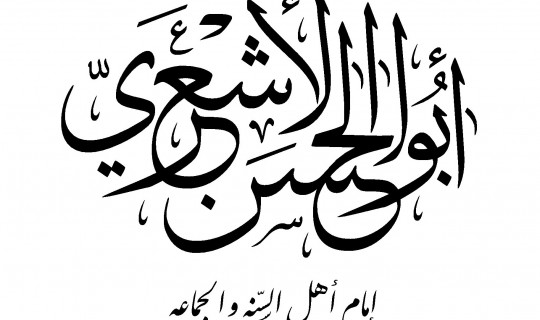 أبو الحسن الأشعريّ
إمام أهل السّنه والجماعه